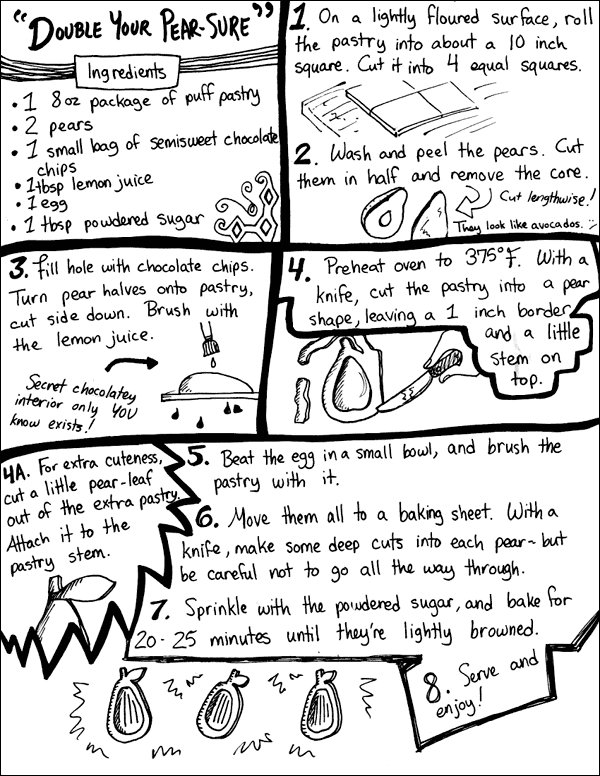 "DOUBLE YOUR PEAR-SURE"
Ingredients
• 1 8oz package of puff pastry
• 2 pears
• 1 small bag of semisweet chocolate
chips
• 1 tbsp lemon juice
• 1 egg
• 1 tbsp powdered sugar
1. On a lightly floured surface, roll
the pastry into about a 10 inch
square. Cut it into 4 equal squares.
2. Wash and peel the pears. Cut
them in half and remove the core.
Cut lengthwise!
They look like avocados.
3. Fill hole with chocolate chips.
Turn pear halves onto pastry,
cut side down. Brush with
the lemon juice.
Secret chocolatey
interior only YOU
know exists!
4. Preheat oven to 375°F. With a
knife, cut the pastry into a pear
shape, leaving a 1 inch border
and a little
stem on
top.
4A. For extra cuteness,
cut a little pear-leaf
out of the extra pastry.
Attach it to the
pastry stem.
5. Beat the egg in a small bowl, and brush the
pastry with it.
6. Move them all to a baking sheet. With a
knife, make some deep cuts into each pear-but
be careful not to go all the way through.
7. Sprinkle with the powdered sugar, and bake for
20-25 minutes until they're lightly browned.
8. Serve and
enjoy!